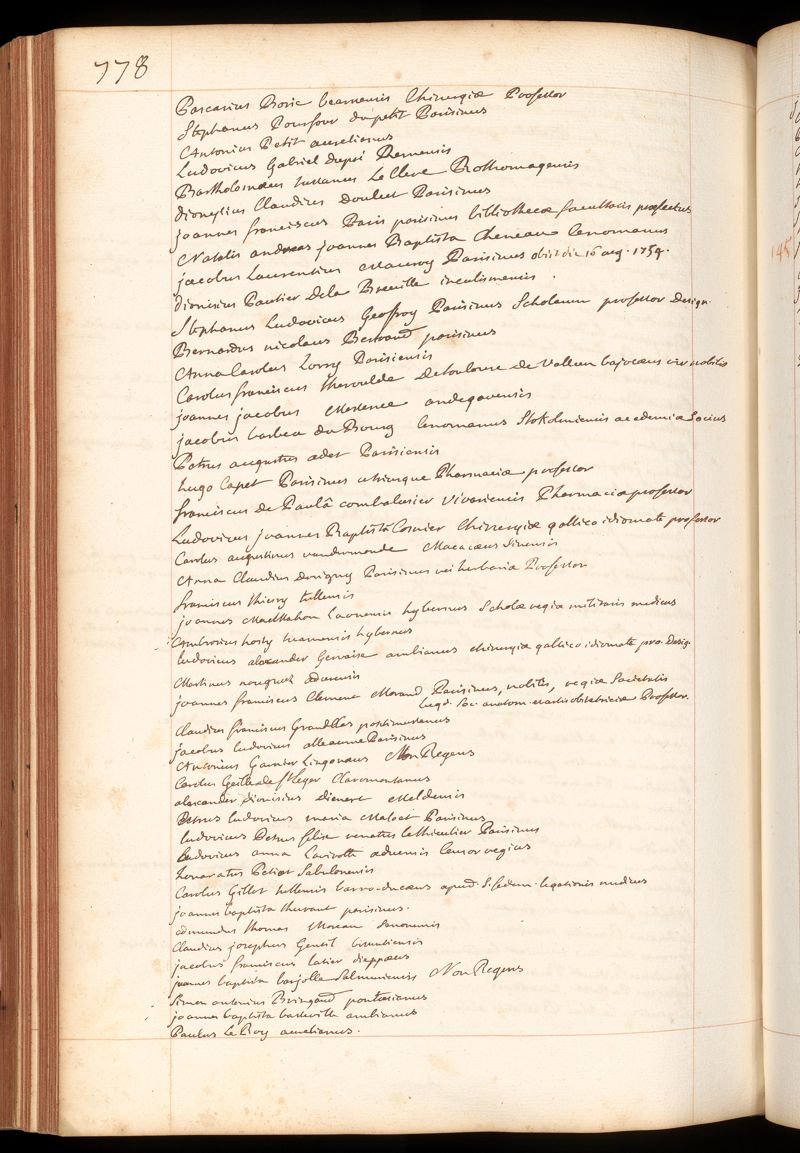 778
Pascasius Borie bearnensis Chirurgiæ Professor
Stephanus Pourfour du petit Parisinus
Antonius Petit aurelianus
Ludovicus Gabriel Dupré Remensis
Bartholomæus tussanus Le Clerc Rothomagensis
dionysius Claudius Doulcet Parisinus
joannes franciscus Paris parisinus bibliothecæ facultatis præfectus
Natalis andreas joannes Baptista Cheneau Cenomanus
jacobus Laurentius Mauroy Parisinus obiit die 16 aug. 1759.
dionisius Pautier Dela Breuille inculismensis.
Stephanus Ludovicus Geoffroy Parisinus Scholarum professor design.
Bernardus nicolaus Bertrand parisinus
Anna Carolus Lorry Parisiensis
Carolus franciscus theroulde De Vallun bajocæus vir nobilis
joannes jacobus Messence andegavensis
jacobus barbeu du Bourg Cenomanus Stokolmiensis academiæ Socius
Petrus augustus adet Parisiensis
hugo Capet Parisinus utriusque Pharmaciæ professor
franciscus de Paulâ combalusier Vivariensis Pharmaciæ professor
Ludovicus joannes Baptista Cosnier Chirurgiæ gallico idiomate professor
Carolus augustinus vandermonde Macacæus Sinensis
Anna Claudius Dorigny Parisinus rei herbariæ Professor
franciscus thiery tullensis
joannes MacMahon Laonensis hybernus Scholæ regiæ militaris medicus
Ambrosius hosty tuamensis hybernus
ludovicus alexander Gervaise ambianus chirurgiæ gallico idiomate pro. Desig
Martinus nouguez aduensis
joannes franciscus Clement Morand Parisinus, nobilis, regiæ Societatis
lugd. Soc. anatom. et artis obstetriciæ Professor.
Claudius franciscus Grandclas postimontanus
jacobus ludovicus alleaume Parisinus
Antonius Garnier Lingonæus Non Regens
Carolus Geille de St Leger Claromontanus
alexander dionisius dienert Meldensis
Petrus ludovicus maria Maloet Parisinus
ludovicus Petrus felix renatus lethieullier Parisinus
Ludovicus anna Lavirotte æduensis Censor regius
honoratus Petiot Sabulonensis
Carolus Gillot tullensis barro-ducæus apud S. sedem. legationis medicus
joannes baptista thurant parisinus.
edmundus thomas Moreau Senonensis
Claudius josephus Gentil bisuntiensis
jacobus franciscus latier dieppæus
joannes baptista barjolle Salmuriensis Non Regens
Simon antonius Bringaud pontæsianus
joannes baptista basseville ambianus
Paulus Le Roy aurelianus.
145